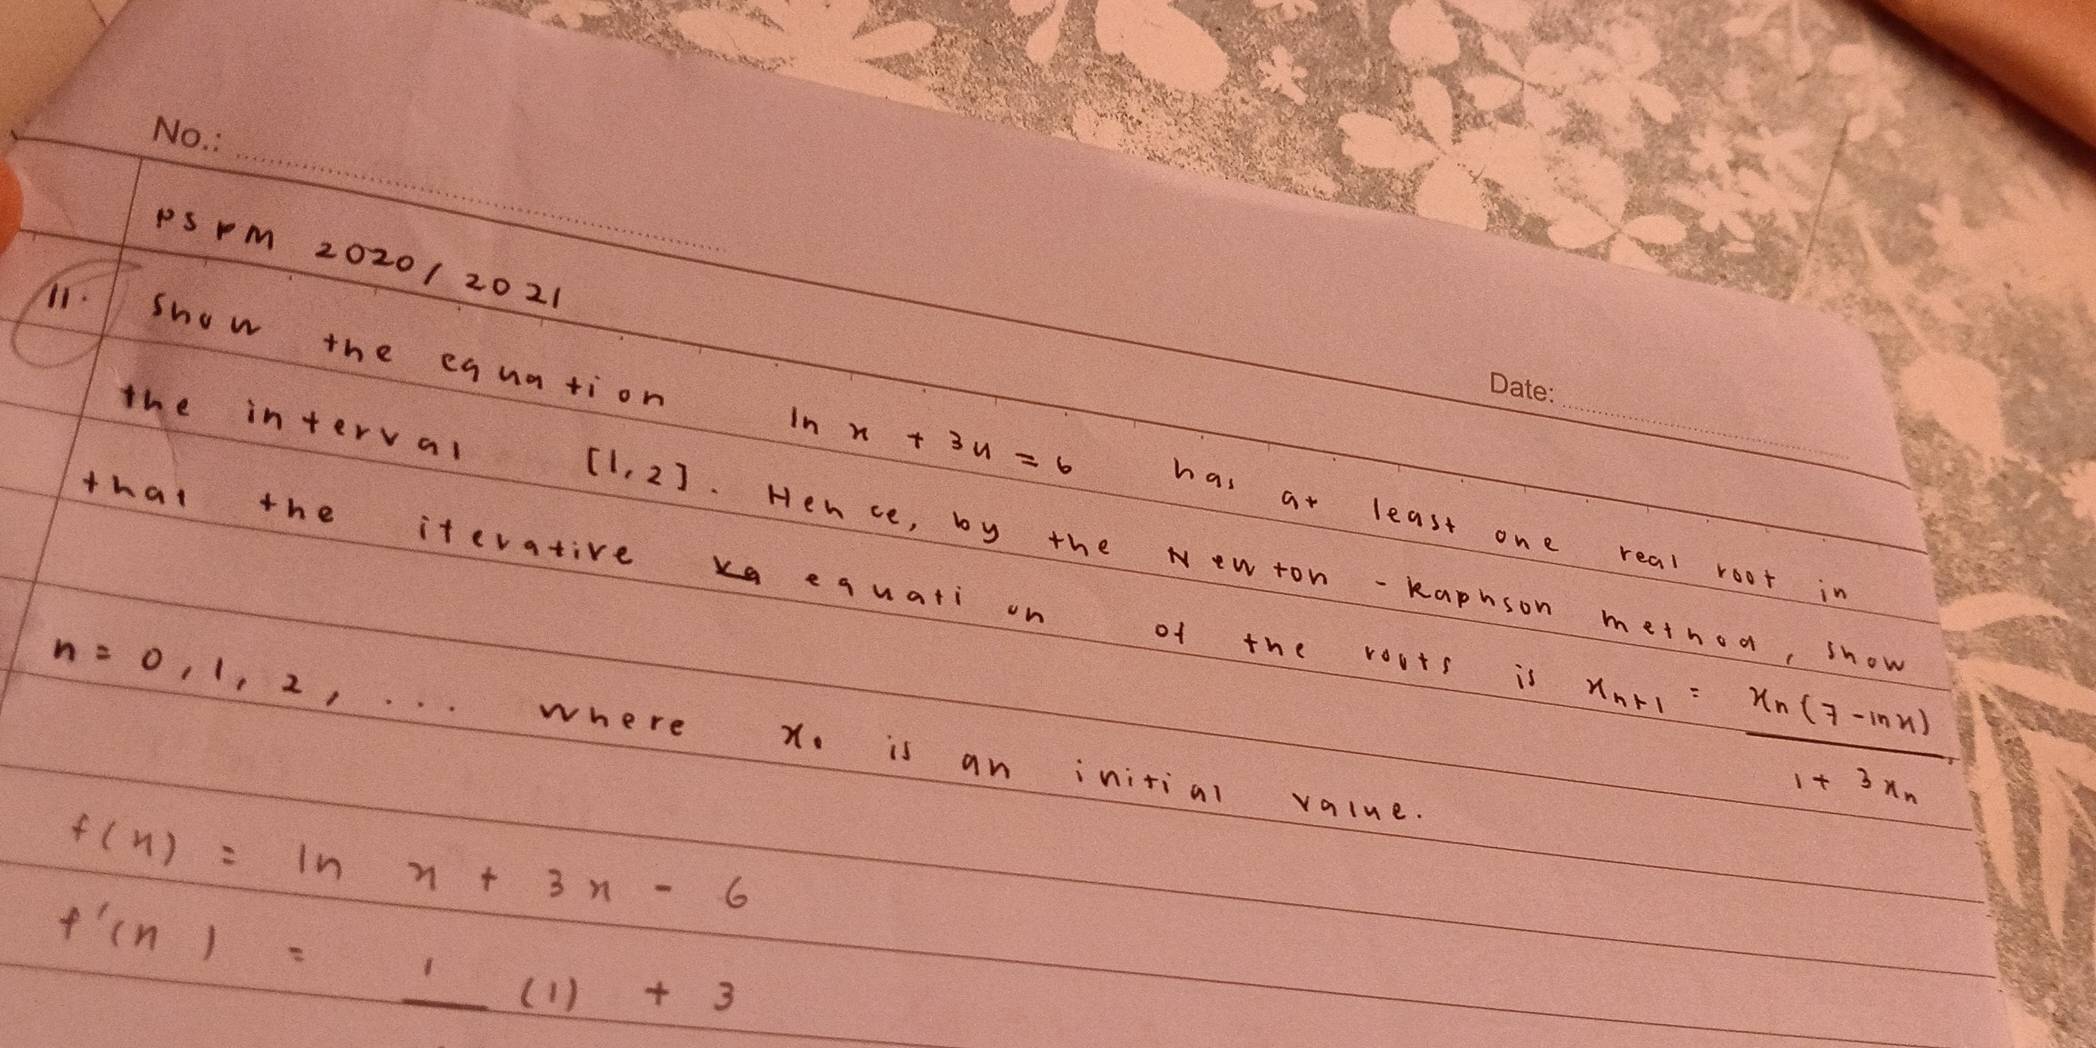 No.:
Date:
PSPM 2020/2021
11. Show the equation ln x + 3x = 6 has at least one real root in
the interval [1,2]. Hence, by the Newton - Raphson method, show
that the iterative equation of the roots is xₙ₊₁ = xₙ(7 - ln x) / 1 + 3xₙ,
n = 0, 1, 2, ... where x₀ is an initial value.
f(x) = ln x + 3x - 6
f'(x) = 1 (1) + 3